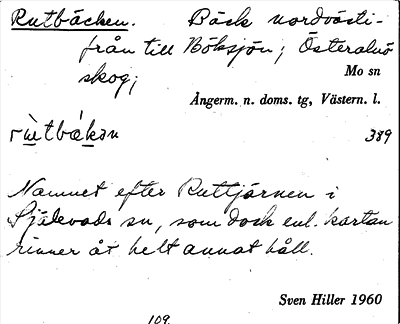 Rutbäcken. Bäck nordvästi-
från till Böksjön; Österalnö
skog;
Mo sn
Ångerm. n. doms. tg, Västern. l.
389
Namnet efter Ruttjärnen i
Själevads sn, som dock enl. kartan
rinner åt helt annat håll.
Sven Hiller 1960
109